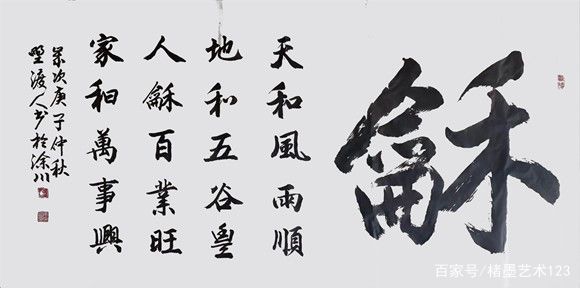 龢
天和風雨順
地和五谷豐
人龢百業旺
家和萬事興
歲次庚子仲秋
渡人书於川
百家号/楮墨艺术123